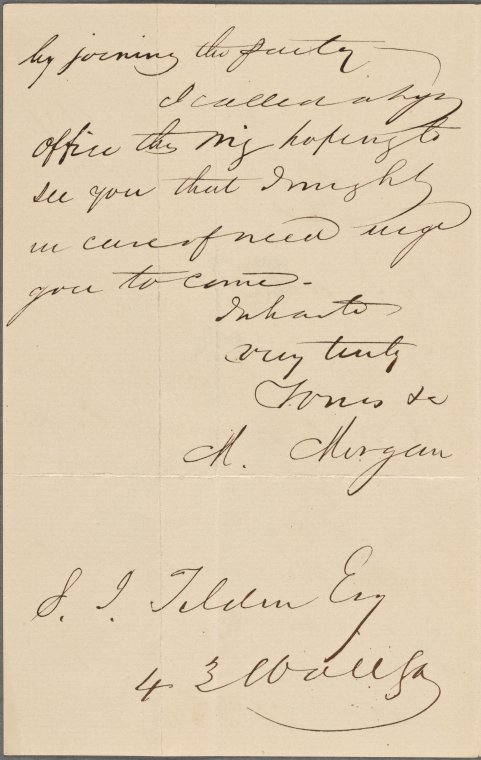 by joining the party —
I called at yr
office this mg hoping to
see you that I might
in case of need urge
you to come -
In haste
very truly
Yours &c
M. Morgan
S. J. Tilden Esq
43 Wall St